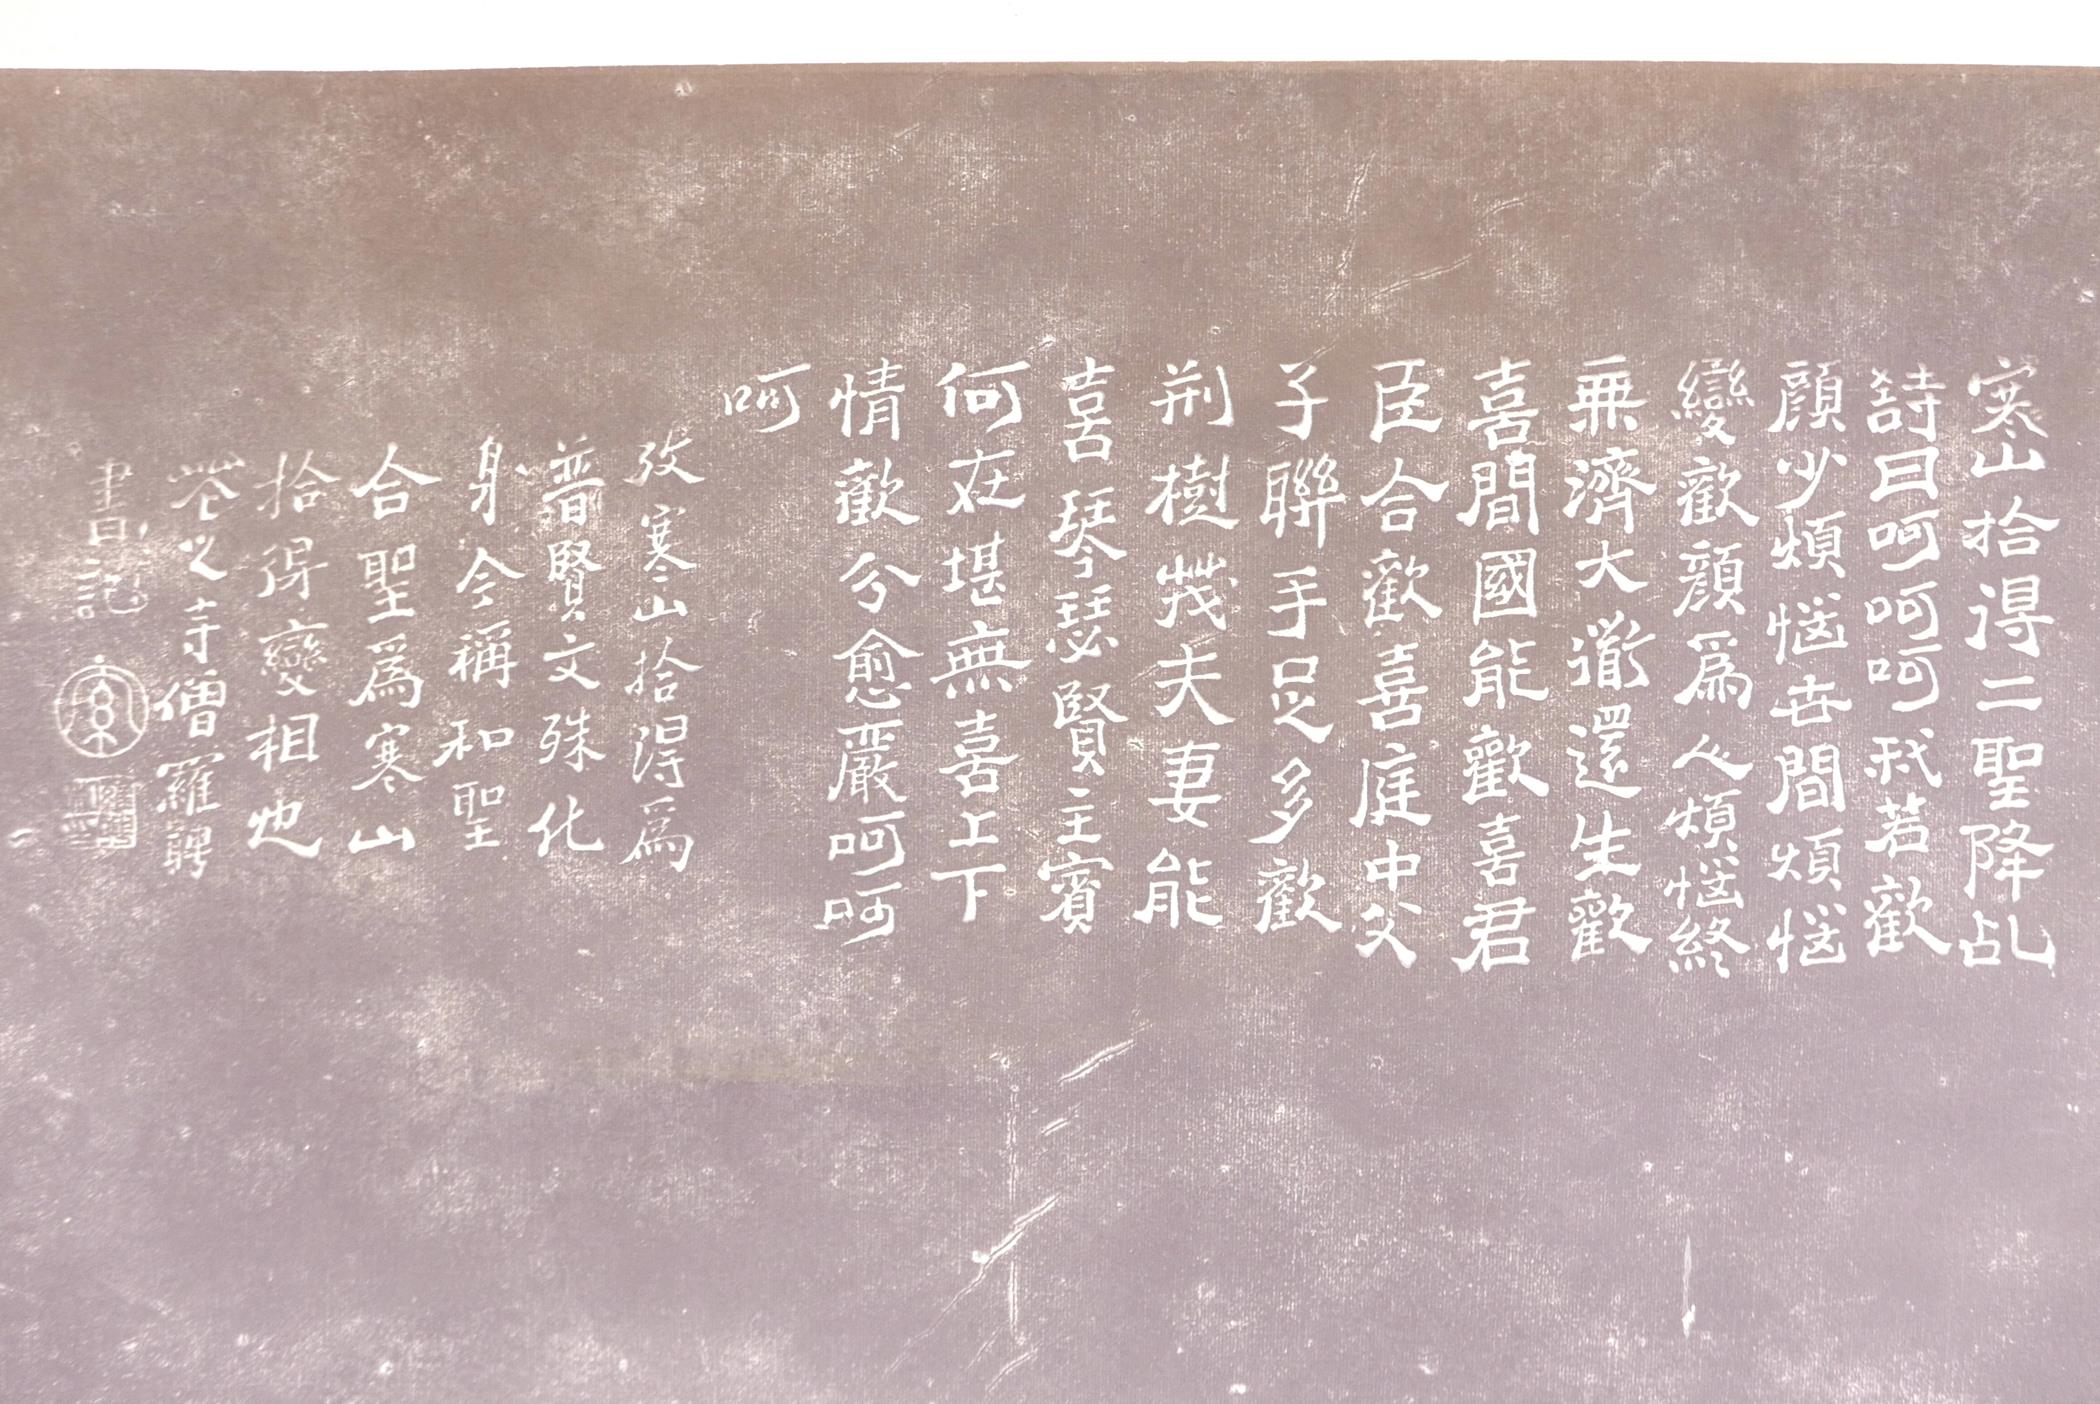 寒山拾得二聖降乩
詩曰呵呵呵我若歡
顏少煩惱世間煩惱
變歡顏爲人煩惱終
無濟大衟還生歡
喜間國能歡喜君
臣合歡喜庭中父
子聯手足多歡
荊樹茂夫妻能
喜琴瑟賢主賓
何在堪無喜上下
情歡兮愈嚴呵呵
呵
攷寒山拾得爲
普賢文殊化
身今稱和聖
合聖爲寒山
拾得變相也
花之寺僧羅聘
書記